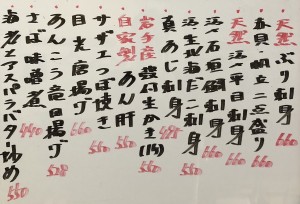 天然 ぶり刺身 660
赤貝・帆立二点盛り 660
天然 活〆平目刺身 660
活〆石垣鯛刺身 660
活〆生だこ刺身 550
真あじ刺身 495
岩手産 殻付生かき(1ヶ)
自家製 あん肝 550
サザエつぼ焼き 550
目光唐揚げ 660
あんこう竜田揚げ 528
さば味噌煮 440
海老とアスパラバター炒め 550